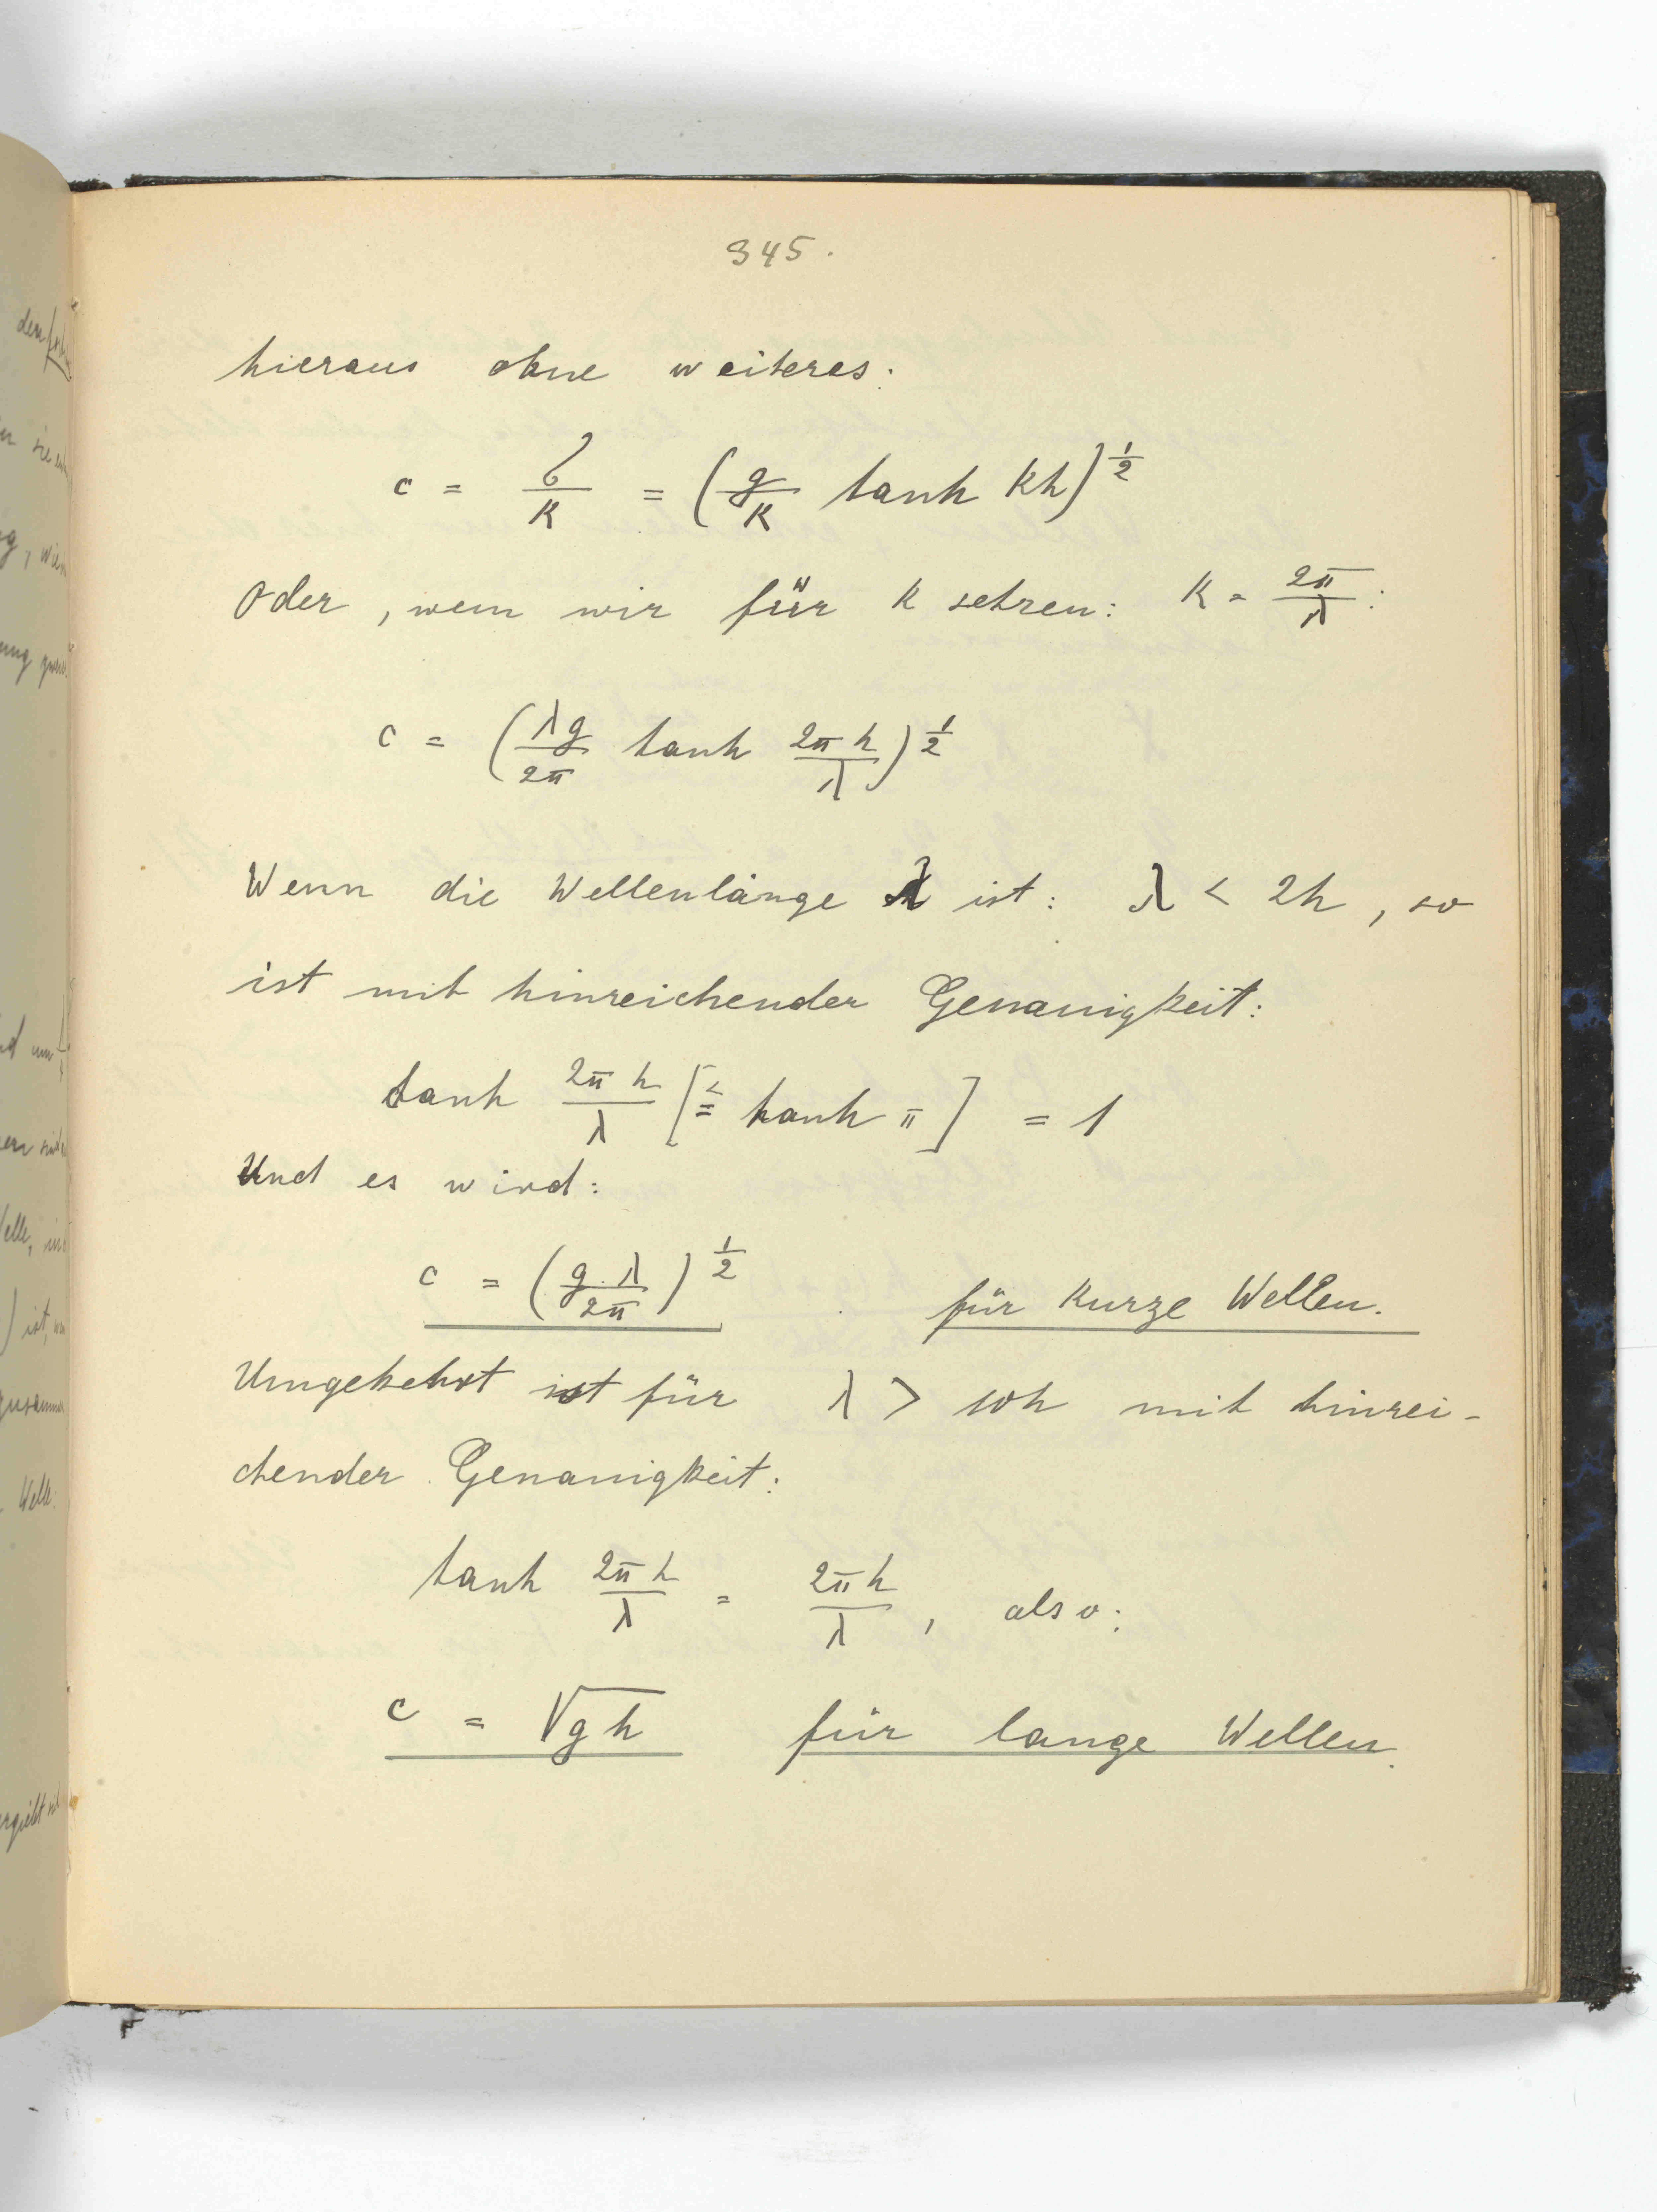 345.
hieraus ohne weiteres:
c = σ/k = (g/k tanh kh)^½
Oder, wenn wir für k setzen: k = 2π/λ:
c = (λg/2π tanh 2πh/λ)^½
Wenn die Wellenlänge λ ist: λ < 2h, so
ist mit hinreichender Genauigkeit:
tanh 2πh/λ [≦ tanh π] = 1
Und es wird:
c = (g·λ/2π)^½ für kurze Wellen.
Umgekehrt ist für λ > 10h mit hinrei-
chender Genauigkeit:
tanh 2πh/λ = 2πh/λ, also:
c = √gh für lange Wellen.